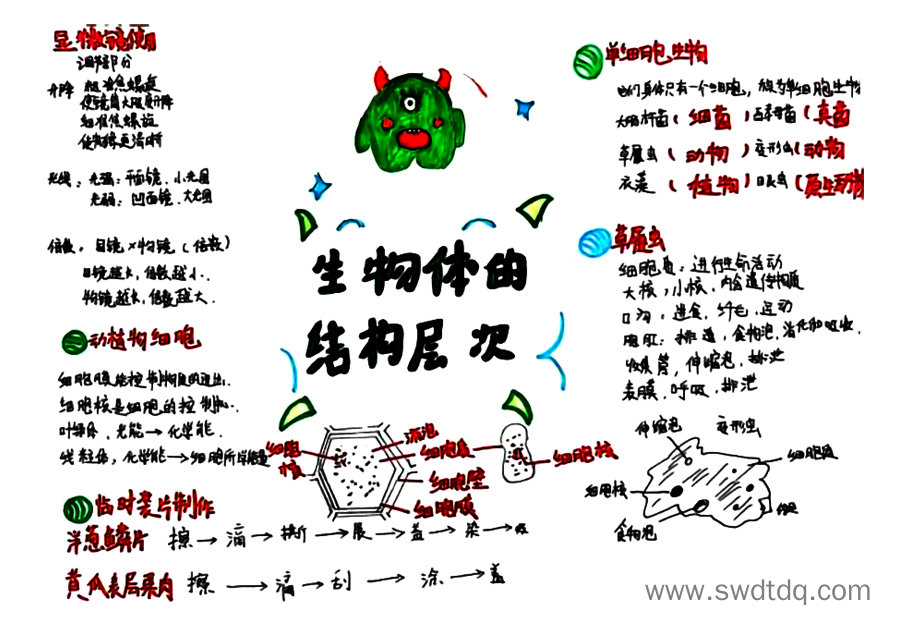 显微镜使用
调节部分
升降 粗准焦螺旋
使镜筒大幅度升降
细准焦螺旋
光线,光强:平面镜,小光圈
光弱:凹面镜,大光圈
倍数,目镜×物镜(倍数)
目镜越长,倍数越小.
物镜越长,倍数越大.
动植物细胞
细胞膜能控制物质的进出.
细胞核是细胞的控制
叶绿体,光能→化学能.
线粒体,化学能→细胞所需能量
临时装片制作
洋葱鳞片 擦→滴→撕→展→盖→染→吸
黄瓜表层果肉 擦→滴→刮→涂→盖
生物体的
结构层次
细胞核
液泡
细胞质
细胞壁
细胞膜
细胞核
单细胞生物
它们身体只有一个细胞,称为单细胞生物
大肠杆菌(细菌)酵母菌(真菌
草履虫(动物)变形虫(动物
衣藻(植物)眼虫(原生动物
草履虫
细胞质:进行生命活动
大核,小核,内含遗传物质
口沟:进食,纤毛,运动
胞肛:排遗,食物泡,消化和吸收,
收集管,伸缩泡,排泄
表膜,呼吸,排泄
伸缩泡
变形虫
细胞质
细胞核
食物泡
www.swdtdq.com